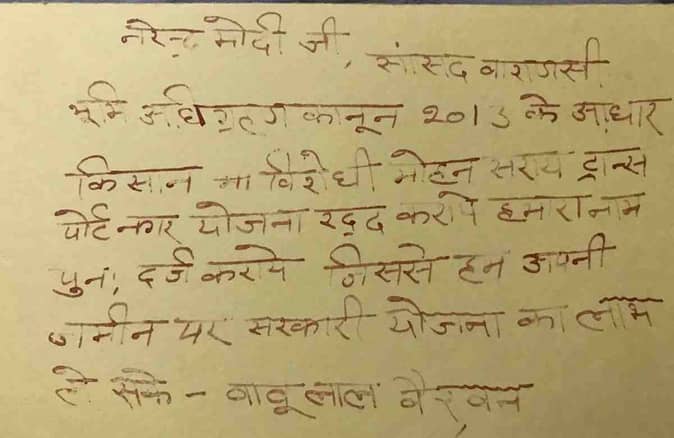 नरेन्द्र मोदी जी, सांसद वाराणसी
भूमि अधिग्रहण कानून 2013 के आधार
किसान विरोधी मोहन सराय ट्रान्स
पोर्ट नगर योजना रद्द कराये हमारा नाम
पुनः दर्ज कराये जिससे हम अपनी
जमीन पर सरकारी योजना का लाभ
ले सके - बाबूलाल बैरवन